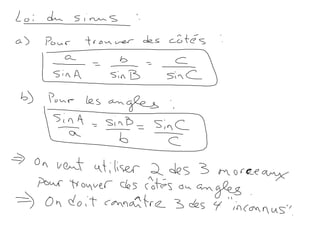 Loi du sinus :
a) Pour trouver des côtés :
a/sinA = b/sinB = c/sinC
b) Pour les angles :
sinA/a = sinB/b = sinC/c
⇒ On veut utiliser 2 des 3 morceaux
pour trouver des côtés ou angles.
⇒ On doit connaître 3 des 4 "inconnus".